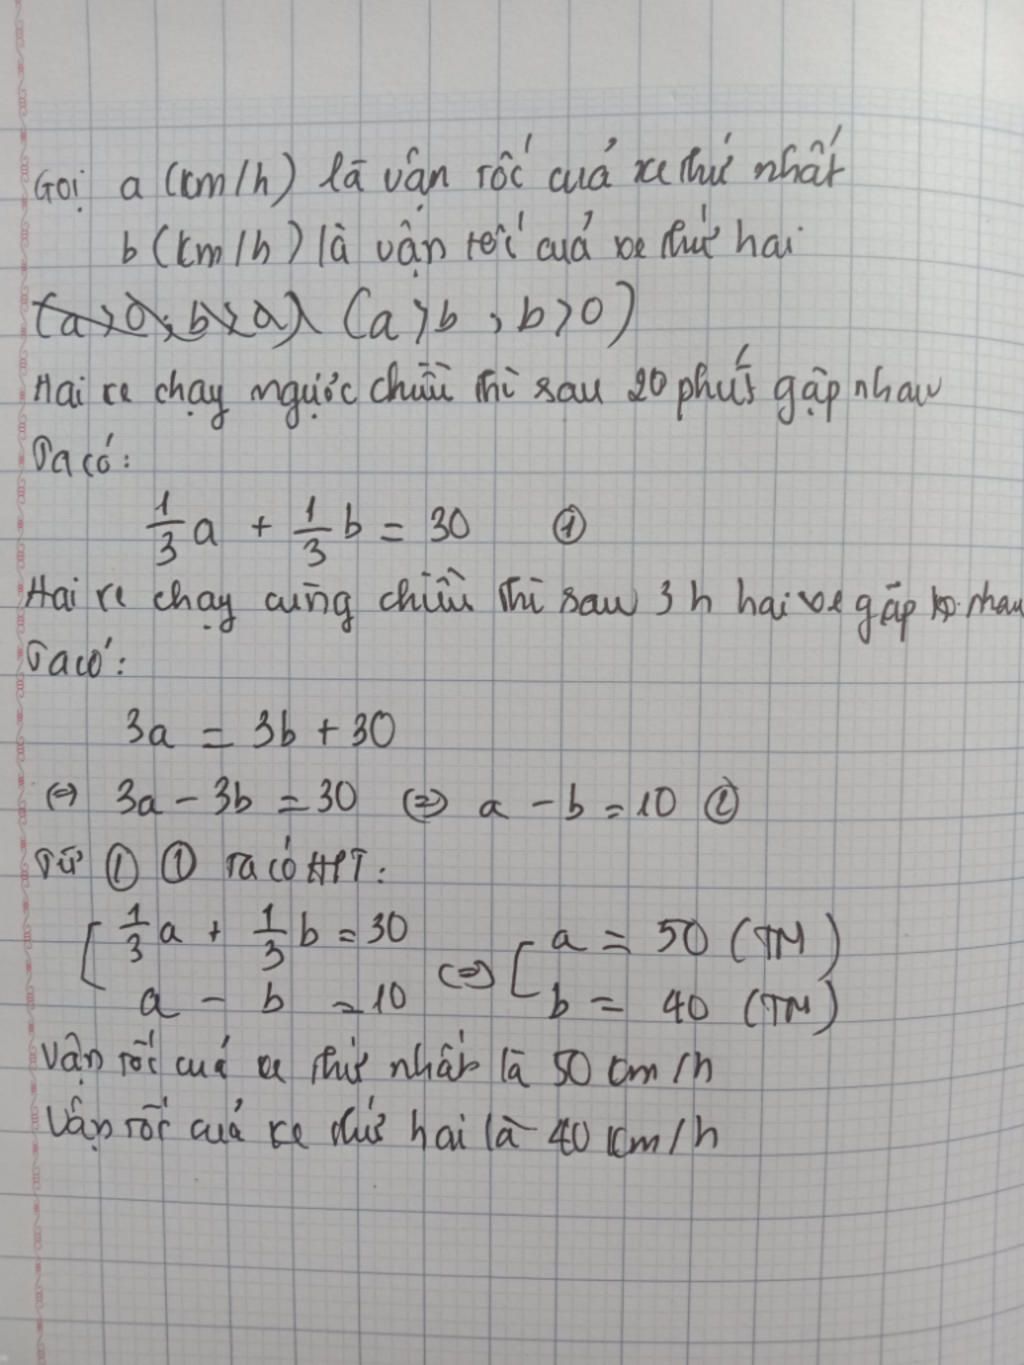 Gọi a (km/h) là vận tốc của xe thứ nhất
b (km/h) là vận tốc của xe thứ hai
(a>0; b>a) (a>b, b>0)
Hai xe chạy ngược chiều thì sau 20 phút gặp nhau
Ta có:
1/3 a + 1/3 b = 30 ①
Hai xe chạy cùng chiều thì sau 3 h hai xe gặp nhau
Ta có:
3a = 3b + 30
⇔ 3a - 3b = 30 ⇔ a - b = 10 ②
Từ ① ① ta có HPT:
[ 1/3 a + 1/3 b = 30
a - b = 10 ⇔ [ a = 50 (TM)
b = 40 (TM)
Vận tốc của xe thứ nhất là 50 km/h
Vận tốc của xe thứ hai là 40 km/h